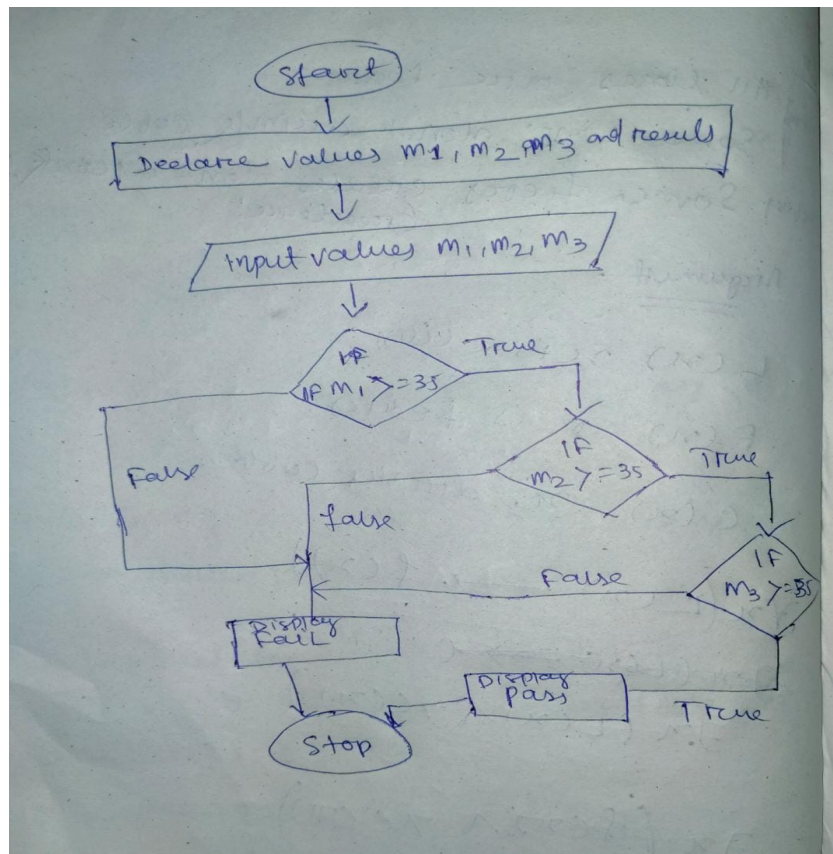 Start
Declare values m1, m2, m3 and result
Input values m1, m2, m3
IF
IF m1 >=35
True
False
IF
m2 >=35
True
false
IF
m3 >=35
False
Display
Fail
Display
Pass
True
Stop